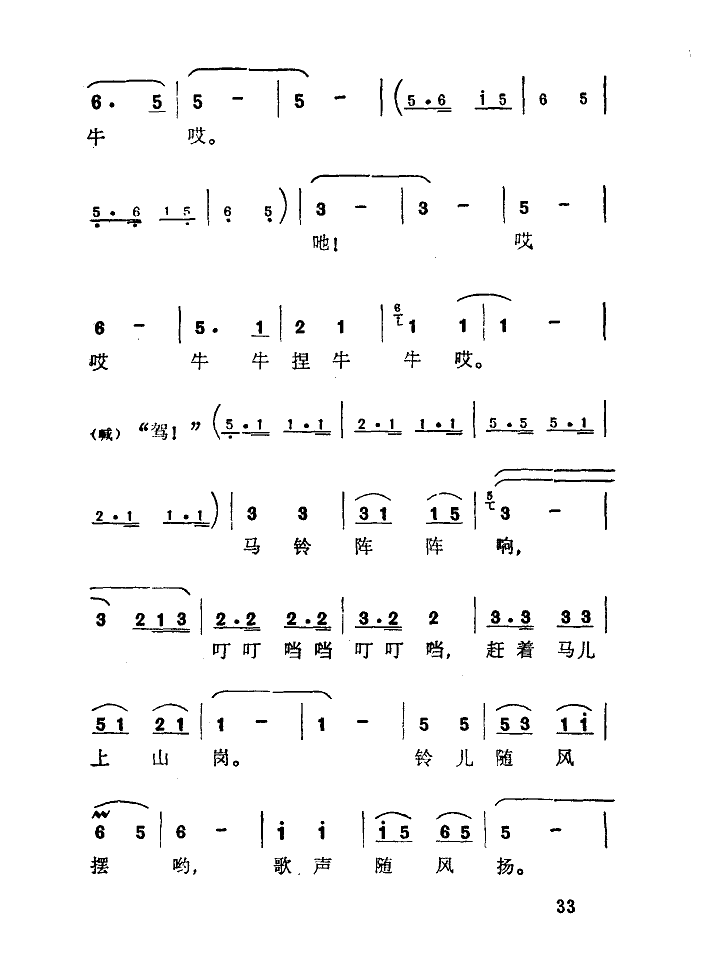 6. 5 | 5 - | 5 - | (5.6 i5 | 6 5 |
牛 哎。
5.6 15 | 6 5) | 3 - | 3 - | 5 - |
吔! 哎
6 - | 5. 1 | 2 1 | 1 1 | 1 - |
哎 牛 牛 捏 牛 牛 哎。
(喊) “驾!” (5.1 1.1 | 2.1 1.1 | 5.5 5.1 |
2.1 1.1) | 3 3 | 31 15 | 5 3 - |
马 铃 阵 阵 响,
3 213 | 2.2 2.2 | 3.2 2 | 3.3 33 |
叮叮 当当 叮叮 当, 赶着 马儿
51 21 | 1 - | 1 - | 5 5 | 53 1i |
上 山 岗。 铃 儿 随 风
6 5 | 6 - | i i | i5 65 | 5 - |
摆 哟, 歌 声 随 风 扬。
33